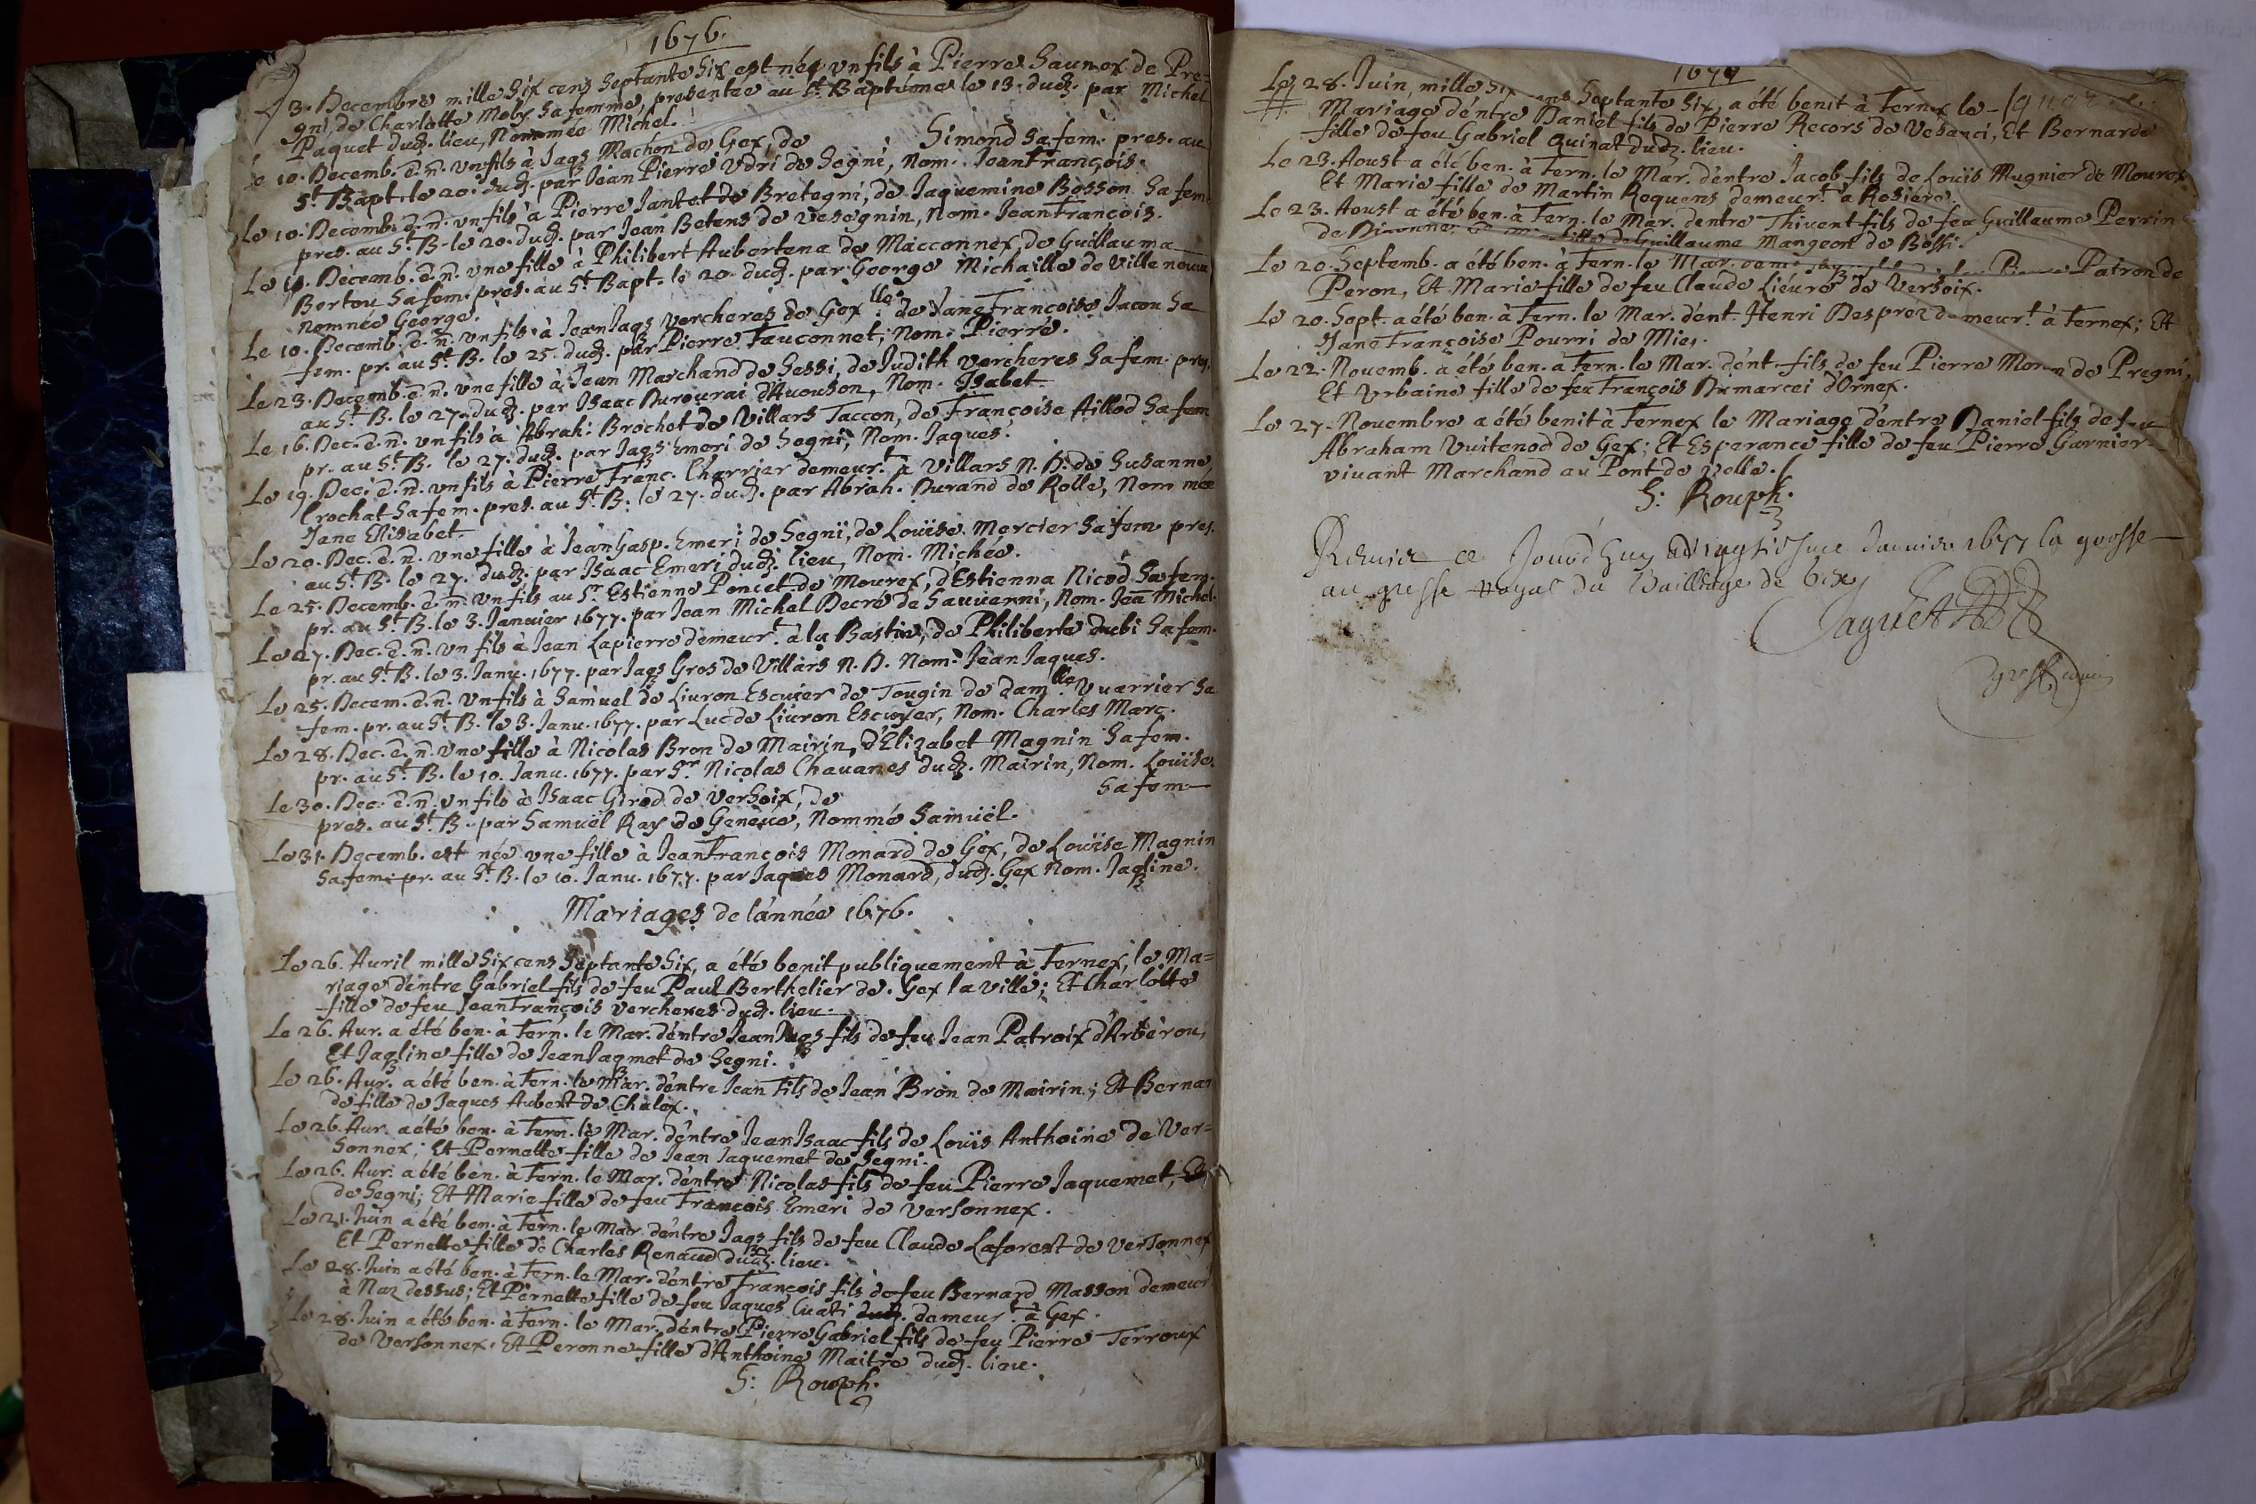 1676.
Le 3. Decembre mille Six cens Septante Six est née vn fils à Pierre Saunex de Pre-
gni, de Charlotte Moly Sa femme, presentée au St. Baptéme le 13. dudt. par Michel
Paquet dudt. lieu, Nommée Michel.
Le 10. Decemb. e. n. vn fils à Jaqs Machon de Gex, de Simond Sa fem. pres. au
St. Bapt. le 20. dudt. par Jean Pierre Vdri de Segni, Nom. Jean François.
Le 10. Decemb. e. n. vn fils à Pierre Jantet de Bretegni, de Jaquemine Bosson Sa fem.
pres. au St. B. le 20. dudt. par Jean Betens de Vesegnin, Nom. Jean François.
Le Decemb. e. n. vne fille à Philibert Aubertena de Macconnex, de Guillauma
Bertou Sa fem. pres. au St. Bapt. le 20. dudt. par George Michaille de Ville neuue
nomnée George.
Le 10. Decemb. e. n. vn fils à Jean Jaqs Vercheres de Gex de Jane Françoise Jacou Sa
fem. pr. au St. B. le 25. dudt. par Pierre Fauconnet, Nom. Pierre.
Le 23. Decemb. e. n. vne fille à Jean Marchand de Sessi, de Judith Vercheres Sa fem. pres.
au St. B. le 27. dudt. par Isaac Durourai d'Auouson, Nom. Isabet
Le 16. Dec. e. n. vn fils à Abrah: Brochet de Villars Taccon, de Françoise Aillod Sa fem
pr. au St. B. le 27. dudt. par Jaqs Emeri de Segni, Nom. Jaques.
Le 19. Dec. e. n. vn fils à Pierre Franc. Charrier demeurt. à Villars N. D. de Susanne
Crochat Sa fem. pres. au St. B. le 27. dudt. par Abrah. Durand de Rolle, Nom mée
Jane Elisabet.
Le 20. Dec. e. n. vne fille à Jean Gasp. Emeri de Segni, de Louïse Mercier Sa fem pres.
au St. B. le 27. dudt. par Isaac Emeri dudt. lieu, Nom. Michée.
Le 25. Decemb. e. n. vn fils au Sr. Estienne Poncet de Mourex, d'Estienna Nicod Sa fem.
pr. au St. B. le 3. Januier 1677. par Jean Michel Decré de Sauuerni, Nom. Jea Michel.
Le 27. Dec. e. n. vn fils à Jean Lapierre demeurt. à la Bastie, de Philiberte dubi Sa fem.
pr. au St. B. le 3. Janu. 1677. par Jaqs Gros de Villars N. D. Nom. Jean Jaques.
Le 25. Decem. e. n. vn fils à Samuel de Liuron Escuier de Tougin de damlle Vuarrier Sa
fem. pr. au St. B. le 3. Janu. 1677. par Luc de Liuron Escuyer, Nom. Charles Marc.
Le 28. Dec. e. n. vne fille à Nicolas Bron de Mairin, d'Elizabet Magnin Sa fem.
pr. au St. B. le 10. Janu. 1677. par Sr Nicolas Chauanes dudt. Mairin, Nom. Louïse.
Le 30. Dec. e. n. vn fils à Isaac Girod de Versoix, de Sa fem
pres. au St. B. par Samuël Ray de Geneue, Nommé Samüël.
Le 31. Decemb. est née vne fille à Jean François Monard de Gex, de Louïse Magnin
Sa fem. pr. au St. B. le 10. Janu. 1677. par Jaques Monard, dudt. Gex Nom. Jaqline.
Mariages de l'année 1676.
Le 26. Auril mille Six cens Septante Six, a été benit publiquement à Fernex, le Ma=
riage d'entre Gabriel fils de feu Paul Berthelier de Gex la ville; Et Charlotte
fille de feu Jean François Vercheres dudt. lieu.
Le 26. Aur. a été ben. à Fern. le Mar. d'entre Jean Jaqs fils de feu Jean Patroix d'Arberou,
Et Jaqline fille de Jean Jaqmet de Segni.
Le 26. Aur. a été ben. à Fern. le Mar. d'entre Jean fils de Jean Bron de Mairin; Et Bernar
de fille de Jaques Aubert de Chalex.
Le 26. Aur. a été ben. à Fern. le Mar. d'entre Jean Isaac fils de Louïs Anthoine de Ver=
sonnex; Et Pernette fille de Jean Jaquemet de Segni.
Le 26. Aur. a été ben. à Fern. le Mar. d'entre Nicolas fils de feu Pierre Jaquemet, Et
de Segni; Et Marie fille de feu François Emeri de Versonnex.
Le 21. Juin a été ben. à Fern. le Mar. d'entre Jaqs fils de feu Claude Laforest de Versonnex
Et Pernette fille de Charles Renaud dudt. lieu.
Le 28. Juin a été ben. à Fern. le Mar. d'entre François fils de feu Bernard Masson demeur
à Naz dessus; Et Pernette fille de feu Jaques Cuati dudt. demeurt. à Gex.
Le 28. Juin a été ben. à Fern. le Mar. d'entre Pierre Gabriel fils de feu Pierre Terroux
de Versonnex. Et Peronne fille d'Anthoine Maitre dudt. lieu.
S: Rouph.
1676
Le 28. Juin, mille Six cens Septante Six, a été benit à Fernex le
Mariage d'entre Daniel fils de Pierre Recors de Vesanci, Et Bernarde
fille de feu Gabriel Quinat dudt. lieu.
Le 23. Aoust a été ben. à Fern. le Mar. d'entre Jacob fils de Louïs Mugnier de Mourex
Et Marie fille de Martin Requens demeurt. à Rosiere.
Le 23. Aoust a été ben. à Fern. le Mar. dentre Thivent fils de feu Guillaume Perrin
de Diuonne, fille de Guillaume Mangeon de Bossi.
Le 20. Septemb. a été ben. à Fern. le Mar. Patron de
Peron, Et Marie fille de feu Claude Liéure de Versoix.
Le 20. Sept. a été ben. à Fern. le Mar. d'ent. Henri Desprez demeurt. à Fernex; Et
Jane Françoise Pourri de Mies.
Le 22. Nouemb. a été ben. à Fern. le Mar. d'ent. fils de feu Pierre Moren de Pregni,
Et Vrbaine fille de feu François Dumarcei d'Ornex.
Le 27. Nouembre a été benit à Fernex le Mariage d'entre Daniel fils de feu
Abraham Vuitenod de Gex; Et Esperance fille de feu Pierre Garnier
viuant Marchand au Pont de Velle.
S: Rouph.
Remise ce Jourdhuy Januier 1677 la grosse
au greffe Royal du Bailliage de Gex